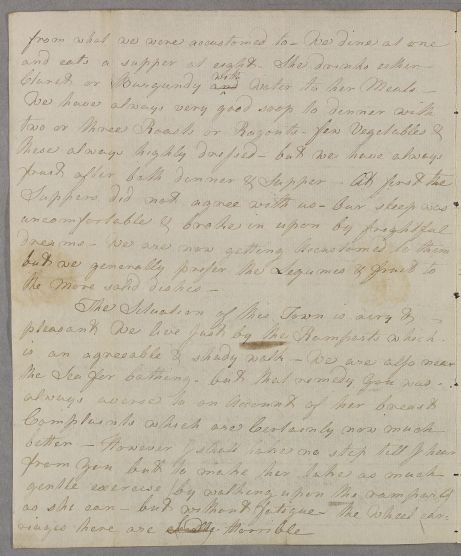 from what we were accustomed to - We dine at one
and eats a supper at eight. She drinks either
Claret or Burgundy with Water to her Meals -
We have always very good soop to dinner with
two or three Roasts or Ragouts - few Vegetables &
these always highly dressed - but we have always
fruit after both dinner & Supper - At first the
Suppers did not agree with us - Our sleep was
uncomfortable & broke in upon by frightful
dreams - We are now getting accustomed to them
but we generally prefer the Legumes & fruit to
the more solid dishes -
The Situation of this Town is airy &
pleasant We live just by the Ramparts which
is an agreable & shady walk - We are also near
the Sea for bathing - but that remedy you was
always averse to on Account of her breast
Complaints which are Certainly now much
better - However I shall take no step till I hear
from you but to make her take as much
gentle exercise by walking upon the ramparts
as she can - but without fatigue - the wheel car-
riages here are horrible